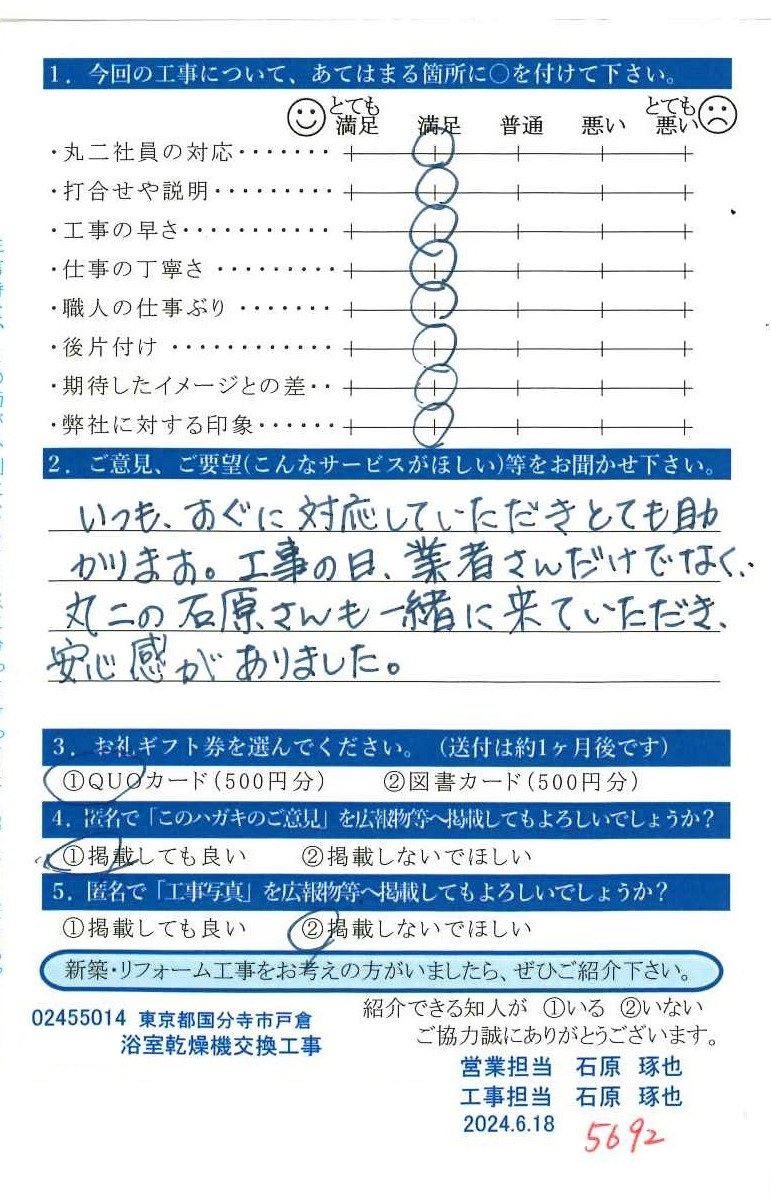 1. 今回の工事について、あてはまる箇所に○を付けて下さい。
とても満足 満足 普通 悪い とても悪い
・丸二社員の対応・・・・・・・
・打合せや説明・・・・・・・・・
・工事の早さ・・・・・・・・・・・
・仕事の丁寧さ・・・・・・・・・
・職人の仕事ぶり・・・・・・・
・後片付け・・・・・・・・・・・・
・期待したイメージとの差・・
・弊社に対する印象・・・・・・
2. ご意見、ご要望(こんなサービスがほしい)等をお聞かせ下さい。
いつも、すぐに対応していただきとても助
かります。工事の日、業者さんだけでなく、
丸二の石原さんも一緒に来ていただき、
安心感がありました。
3. お礼ギフト券を選んでください。(送付は約1ヶ月後です)
①QUOカード(500円分) ②図書カード(500円分)
4. 匿名で「このハガキのご意見」を広報物等へ掲載してもよろしいでしょうか?
①掲載しても良い ②掲載しないでほしい
5. 匿名で「工事写真」を広報物等へ掲載してもよろしいでしょうか?
①掲載しても良い ②掲載しないでほしい
新築・リフォーム工事をお考えの方がいましたら、ぜひご紹介下さい。
紹介できる知人が ①いる ②いない
ご協力誠にありがとうございます。
02455014 東京都国分寺市戸倉
浴室乾燥機交換工事
営業担当 石原 琢也
工事担当 石原 琢也
2024.6.18
5692